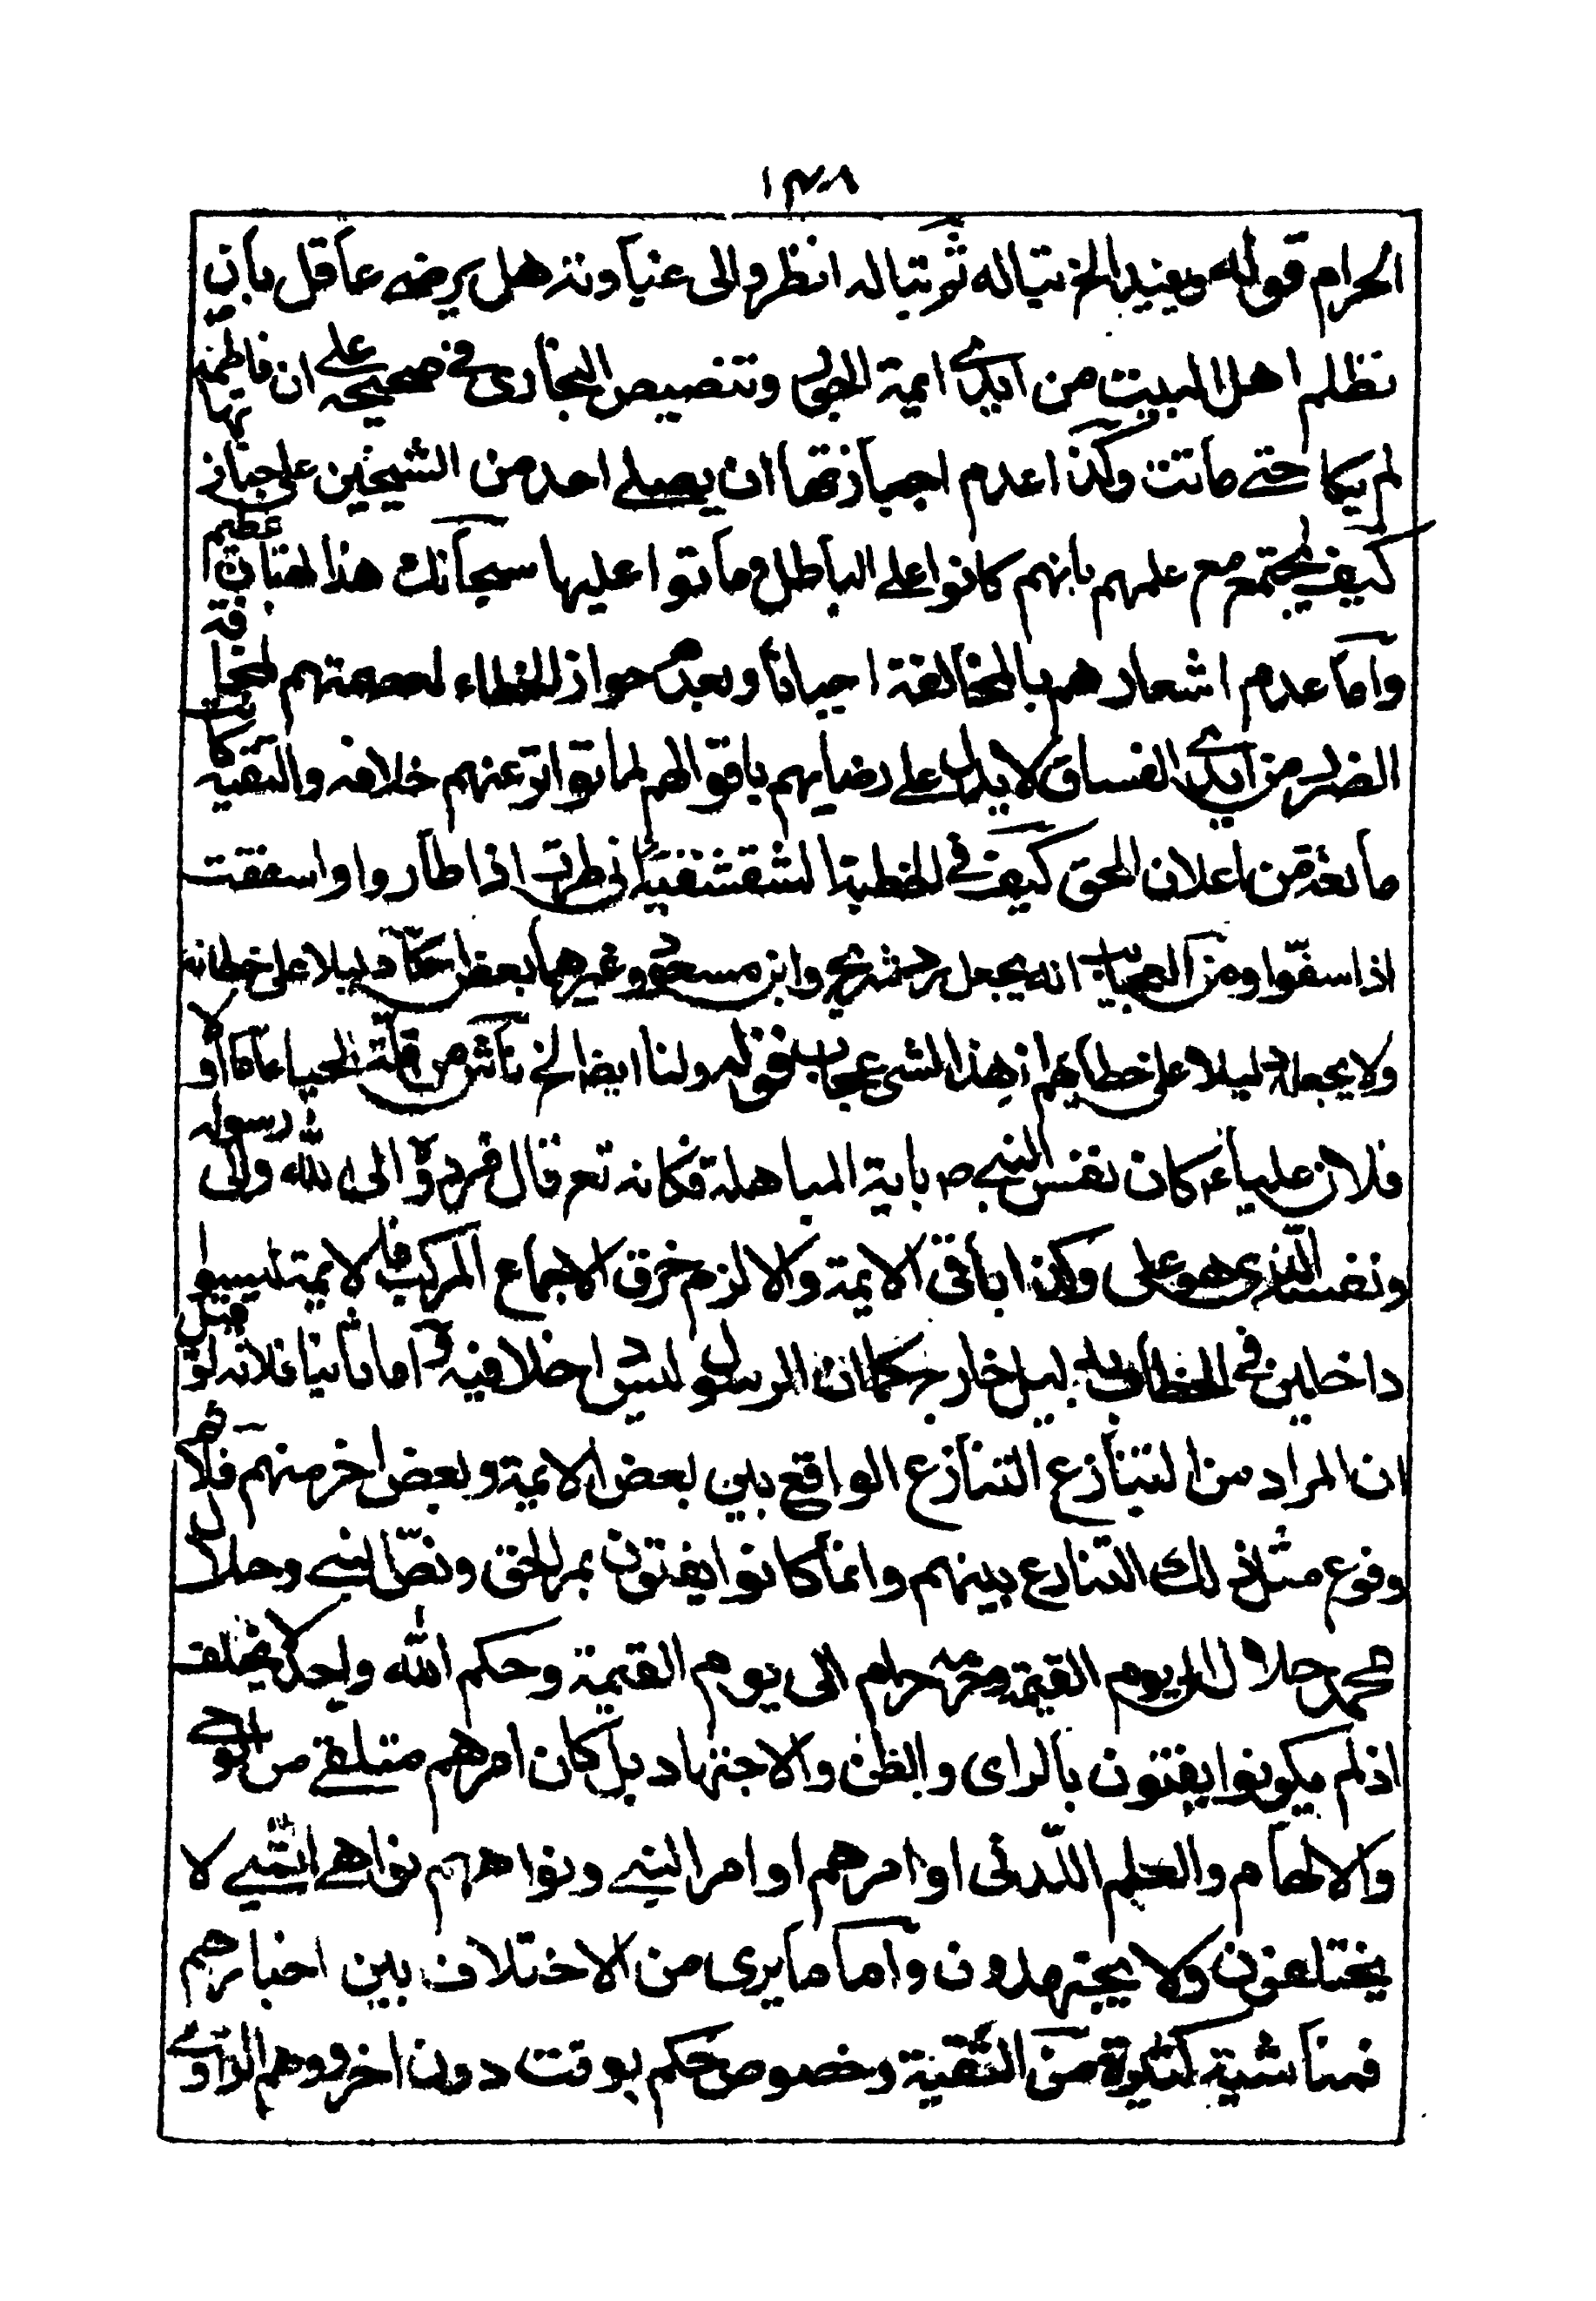 ١٣٠٨
الحرام قوله ويفيد الخ تبا له ثم تبا له انظروا الى غباوته هل يرضى عاقل بان
تظلم اهل البيت من ايدى ائمة الجور وتنصيص البخارى فى صحيحه على ان فاطمة
لم يكلمها حتى ماتت وكذا عدم اجازتها ان يصلى احد من الشيخين على جنازتها
كيف يجتمع مع علمهم بانهم كانوا على الباطل وماتوا عليها سبحانك هذا بهتان عظيم
واما عدم اشعارهم بالمخالفة احيانا وبعد جواز الخطاء لعصمتهم لمخافة
الضرر من ايدى الفساق لا يدل على رضايهم باقوالهم لما تواتر عنهم خلافه والتقية كانت
مانعة من اعلان الحق كيف فى الخطبة الشقشقية انى طرت اذا طاروا واسففت
اذا سفوا ومن العجاب انه يجعل رد شريح وابن مسعود وغيرهما بعض احكامه دليلا على خطائه
ولا يجعله دليلا على خطايهم ان هذا لشئ عجاب قوله ولنا ايضا الخ ناش من قلة الحياء اما اولا
فلان عليا ع كان نفس النبى ص باية المباهلة فكانه تع قال فردوه الى الله والى رسوله
ونفسه الذى هو على وكذا باقى الائمة والا لزم خرق الاجماع المركب فالائمة ليسوا
داخلين فى الخطاب بل خارج كما ان الرسول ليس داخلا فيه واما ثانيا فلانه لو قيل
ان المراد من التنازع التنازع الواقع بين بعض الائمة وبعض اخر منهم فلا
وقوع مثل ذلك التنازع بينهم وانما كانوا يفتون بمر الحق ونص النبى وحلال
محمد حلال الى يوم القيمة وحرمه حرام الى يوم القيمة وحكم الله واحد لا يختلف
اذ لم يكونوا يفتون بالراى والظن والاجتهاد بل كان امرهم متلقى من الوحى
والالهام والعلم اللدنى اوامرهم اوامر النبى ونواهيهم نواهى النبى لا
يختلفون ولا يجتهدون واما ما يرى من الاختلاف بين اخبارهم
فمناشيه كثيرة من التقية وخصوص حكم بوقت دون اخر ووهم الراوى